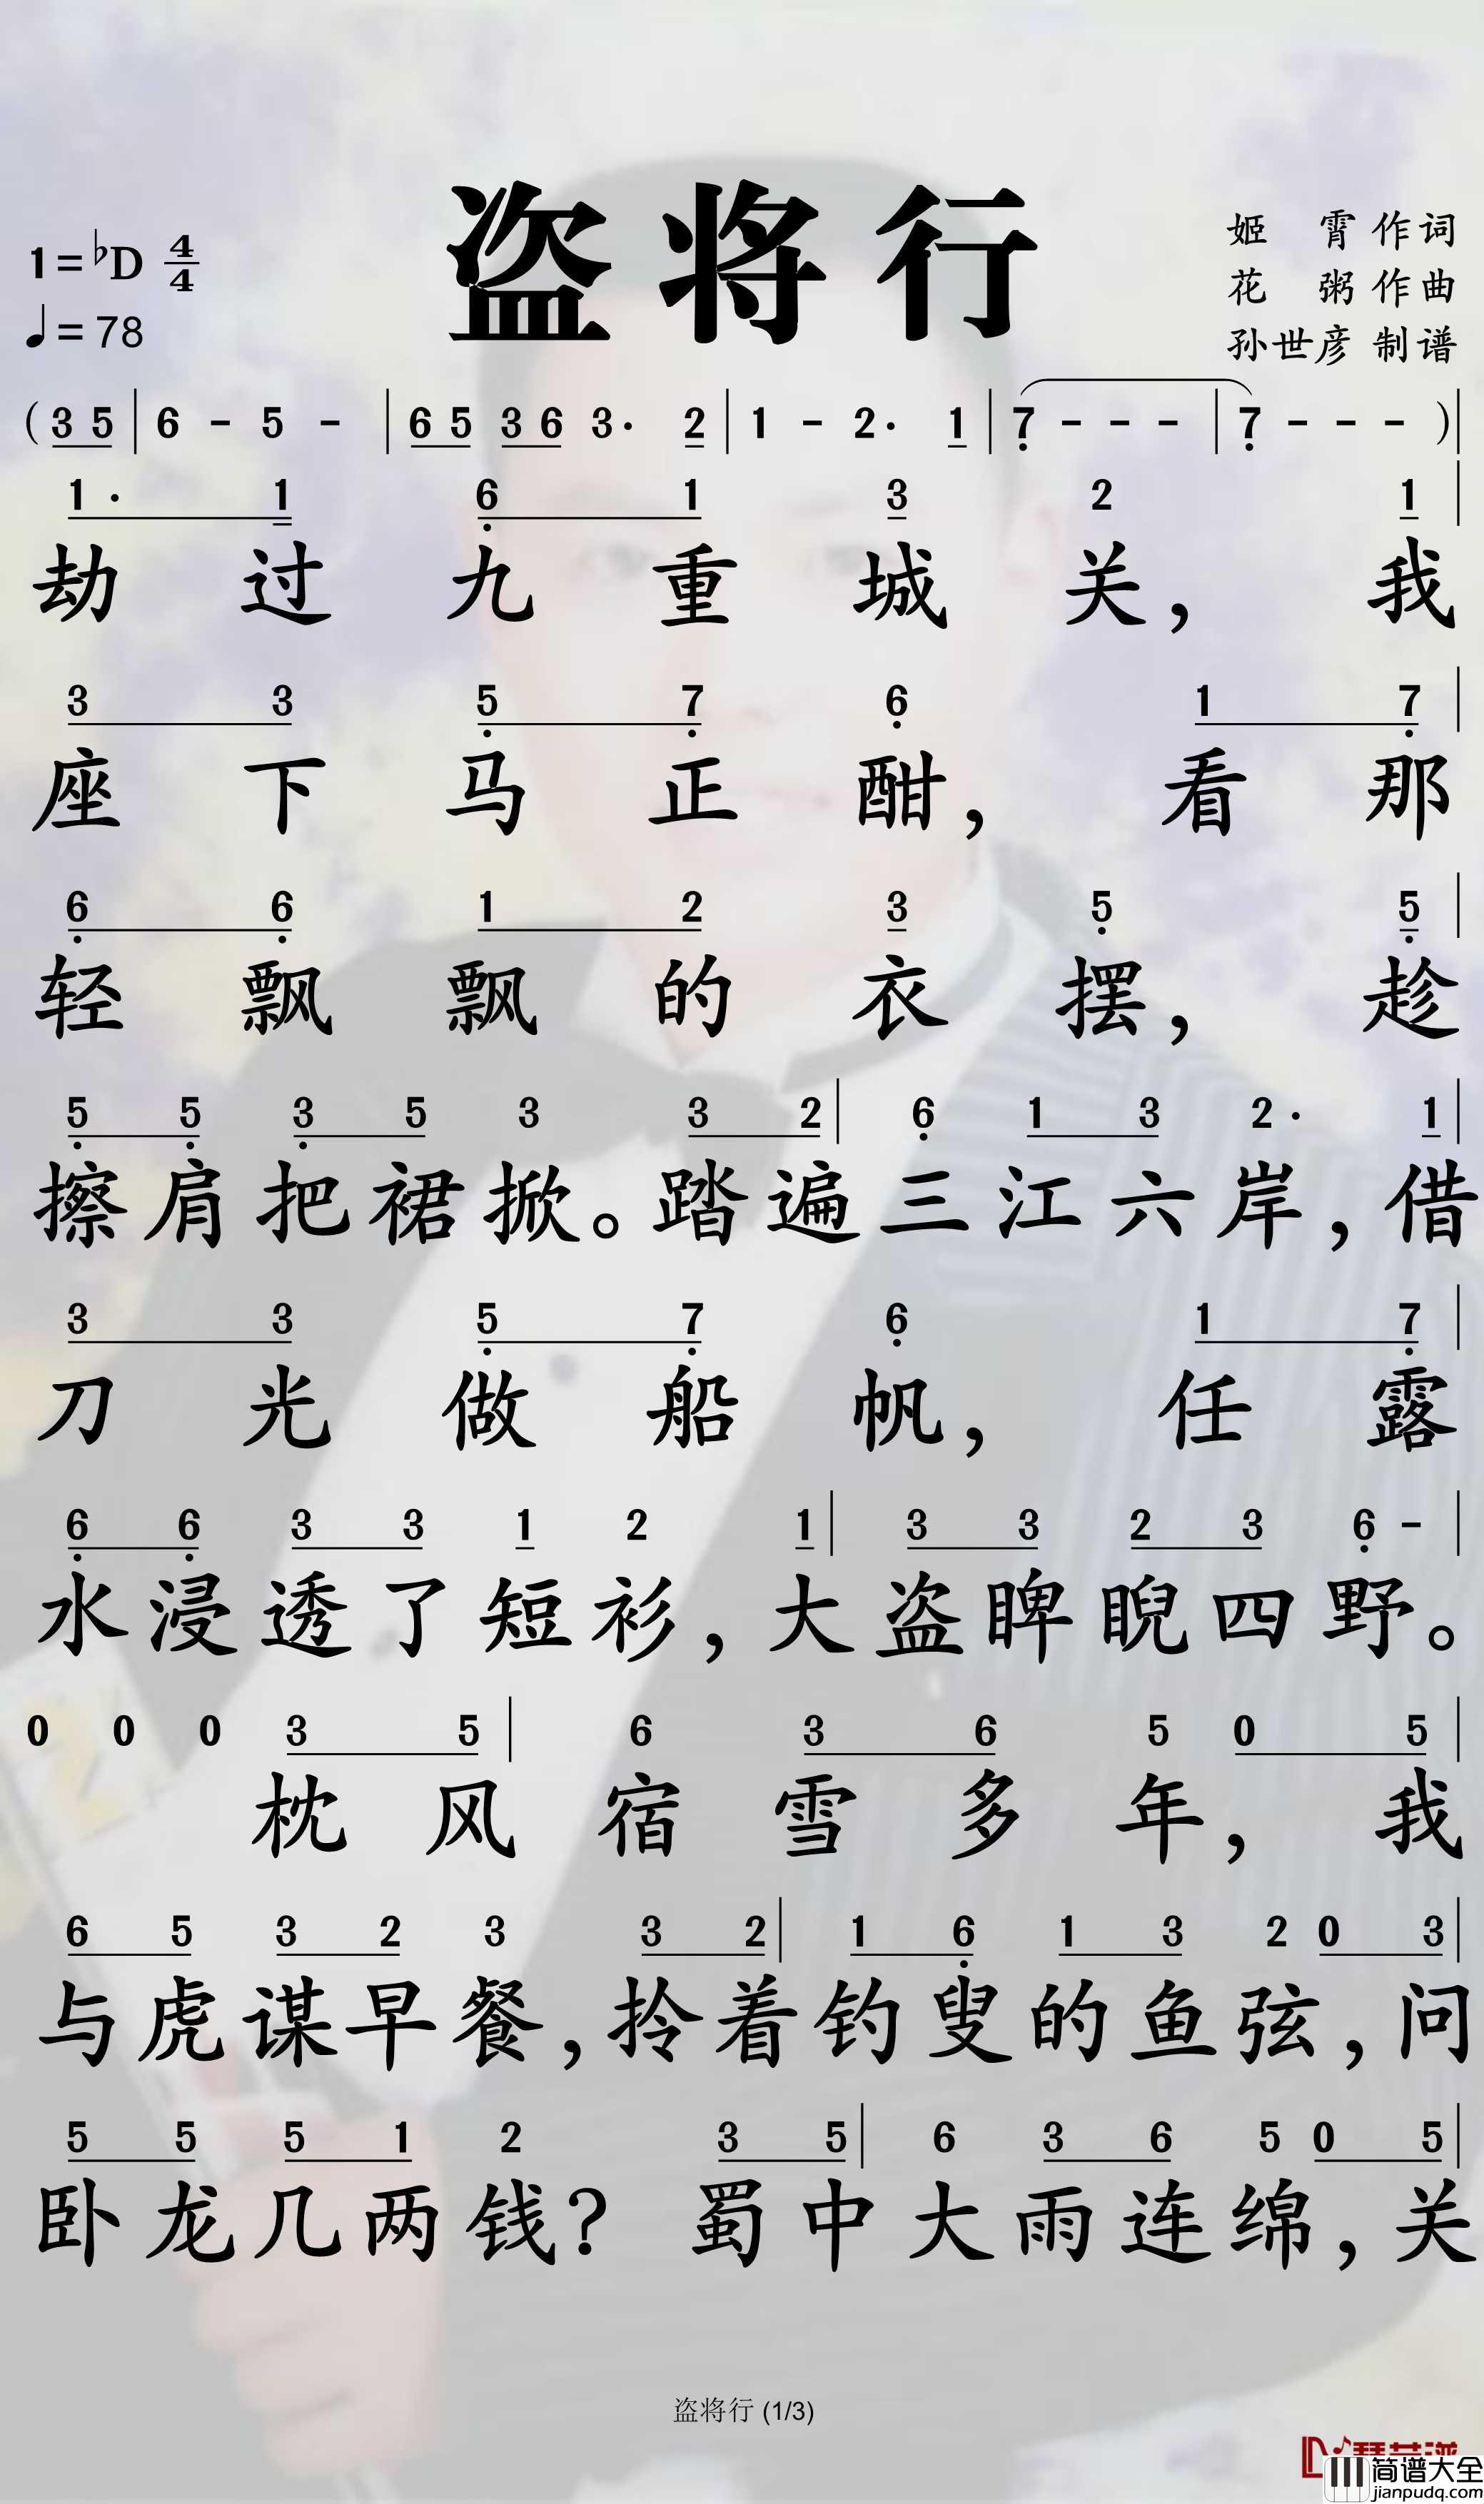 盗将行
1=♭D 4/4
♩=78
姬 霄 作词
花 粥 作曲
孙世彦 制谱
( 3 5 | 6 - 5 - | 6 5 3 6 3 · 2 | 1 - 2 · 1 | 7 - - - | 7 - - - ) |
1 · 1 6 1 3 2 1 |
劫过九重城关，我
3 3 5 7 6 1 7 |
座下马正酣，看那
6 6 1 2 3 5 5 |
轻飘飘的衣摆，趁
5 5 3 5 3 3 2 | 6 1 3 2 · 1 |
擦肩把裙掀。踏遍三江六岸，借
3 3 5 7 6 1 7 |
刀光做船帆，任露
6 6 3 3 1 2 1 | 3 3 2 3 6 - |
水浸透了短衫，大盗睥睨四野。
0 0 0 3 5 | 6 3 6 5 0 5 |
枕风宿雪多年，我
6 5 3 2 3 3 2 | 1 6 1 3 2 0 3 |
与虎谋早餐，拎着钓叟的鱼弦，问
5 5 5 1 2 3 5 | 6 3 6 5 0 5 |
卧龙几两钱？蜀中大雨连绵，关
盗将行 (1/3)
简谱大全
jianpudq.com